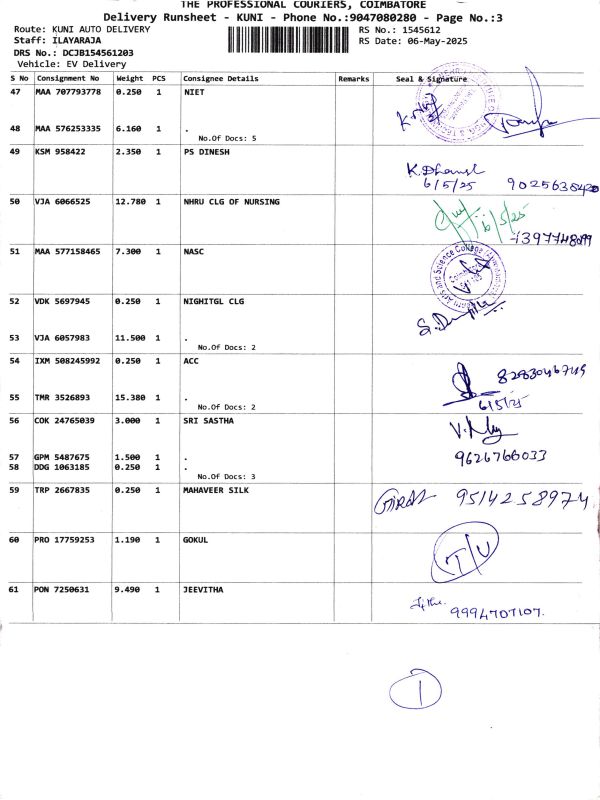 THE PROFESSIONAL COURIERS, COIMBATORE
Delivery Runsheet - KUNI - Phone No.:9047080280 - Page No.:3
Route: KUNI AUTO DELIVERY RS No.: 1545612
Staff: ILAYARAJA RS Date: 06-May-2025
DRS No.: DCJB154561203
Vehicle: EV Delivery
S No Consignment No Weight PCS Consignee Details Remarks Seal & Signature
47 MAA 707793778 0.250 1 NIET
48 MAA 576253335 6.160 1 .
No.Of Docs: 5
49 KSM 958422 2.350 1 PS DINESH
6/5/25 9025638420
50 VJA 6066525 12.780 1 NHRU CLG OF NURSING
6/5/25
51 MAA 577158465 7.300 1 NASC
52 VDK 5697945 0.250 1 NIGHITGL CLG
53 VJA 6057983 11.500 1 .
No.Of Docs: 2
54 IXM 508245992 0.250 1 ACC
55 TMR 3526893 15.380 1 .
6/5/25
No.Of Docs: 2
56 COK 24765039 3.000 1 SRI SASTHA
57 GPM 5487675 1.500 1 . 9626766033
58 DDG 1063185 0.250 1 .
No.Of Docs: 3
59 TRP 2667835 0.250 1 MAHAVEER SILK 9514258974
60 PRO 17759253 1.190 1 GOKUL
T/U
61 PON 7250631 9.490 1 JEEVITHA
9994707107.
1